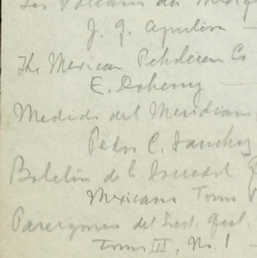 Los Volcanes de Mexi
J. G. Aguilera —
The Mexican Petroleum Co
E. Doheny —
Medida del Meridiano
Pedro C. Sanchez
Boletin de la Sociedad G
Mexicana Tomo
Parergones del Inst. Geol.
Tomo III, No. 1 —